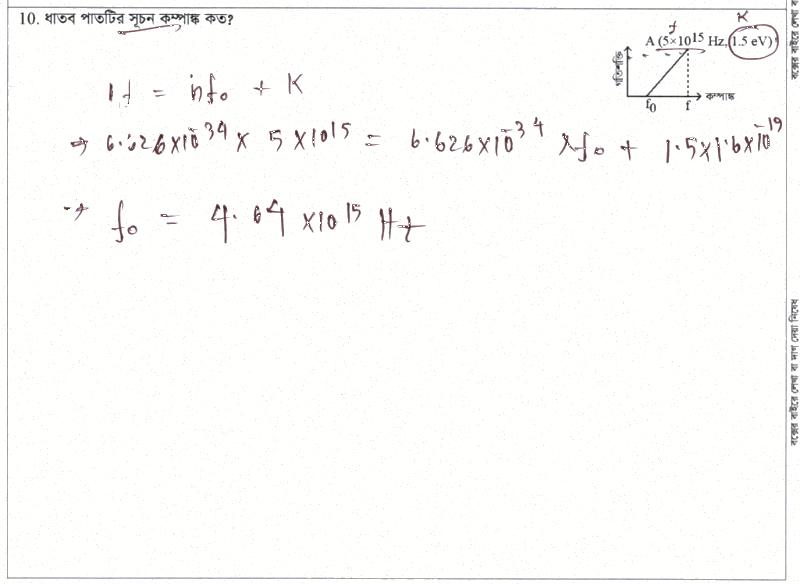 10. ধাতব পাতটির সূচন কম্পাঙ্ক কত?
f
K
A (5×10¹⁵ Hz, 1.5 eV)
গতিশক্তি
f₀
f
কম্পাঙ্ক
hf = hf₀ + K
⇒ 6.626×10⁻³⁴ × 5×10¹⁵ = 6.626×10⁻³⁴ × f₀ + 1.5×1.6×10⁻¹⁹
⇒ f₀ = 4.64 ×10¹⁵ Hz
বক্সের বাইরে লেখা বা দাগ দেয়া নিষেধ